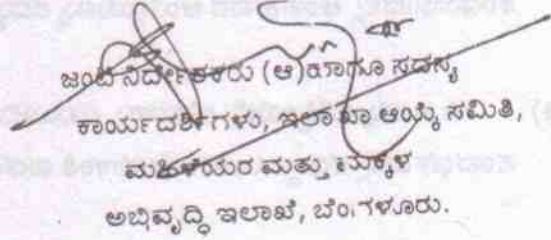 ಜಂಟಿ ನಿರ್ದೇಶಕರು (ಆ)ಹಾಗೂ ಸದಸ್ಯ
ಕಾರ್ಯದರ್ಶಿಗಳು, ಇಲಾಖಾ ಆಯ್ಕೆ ಸಮಿತಿ,
ಮಹಿಳೆಯರ ಮತ್ತು ಮಕ್ಕಳ
ಅಭಿವೃದ್ಧಿ ಇಲಾಖೆ, ಬೆಂಗಳೂರು.